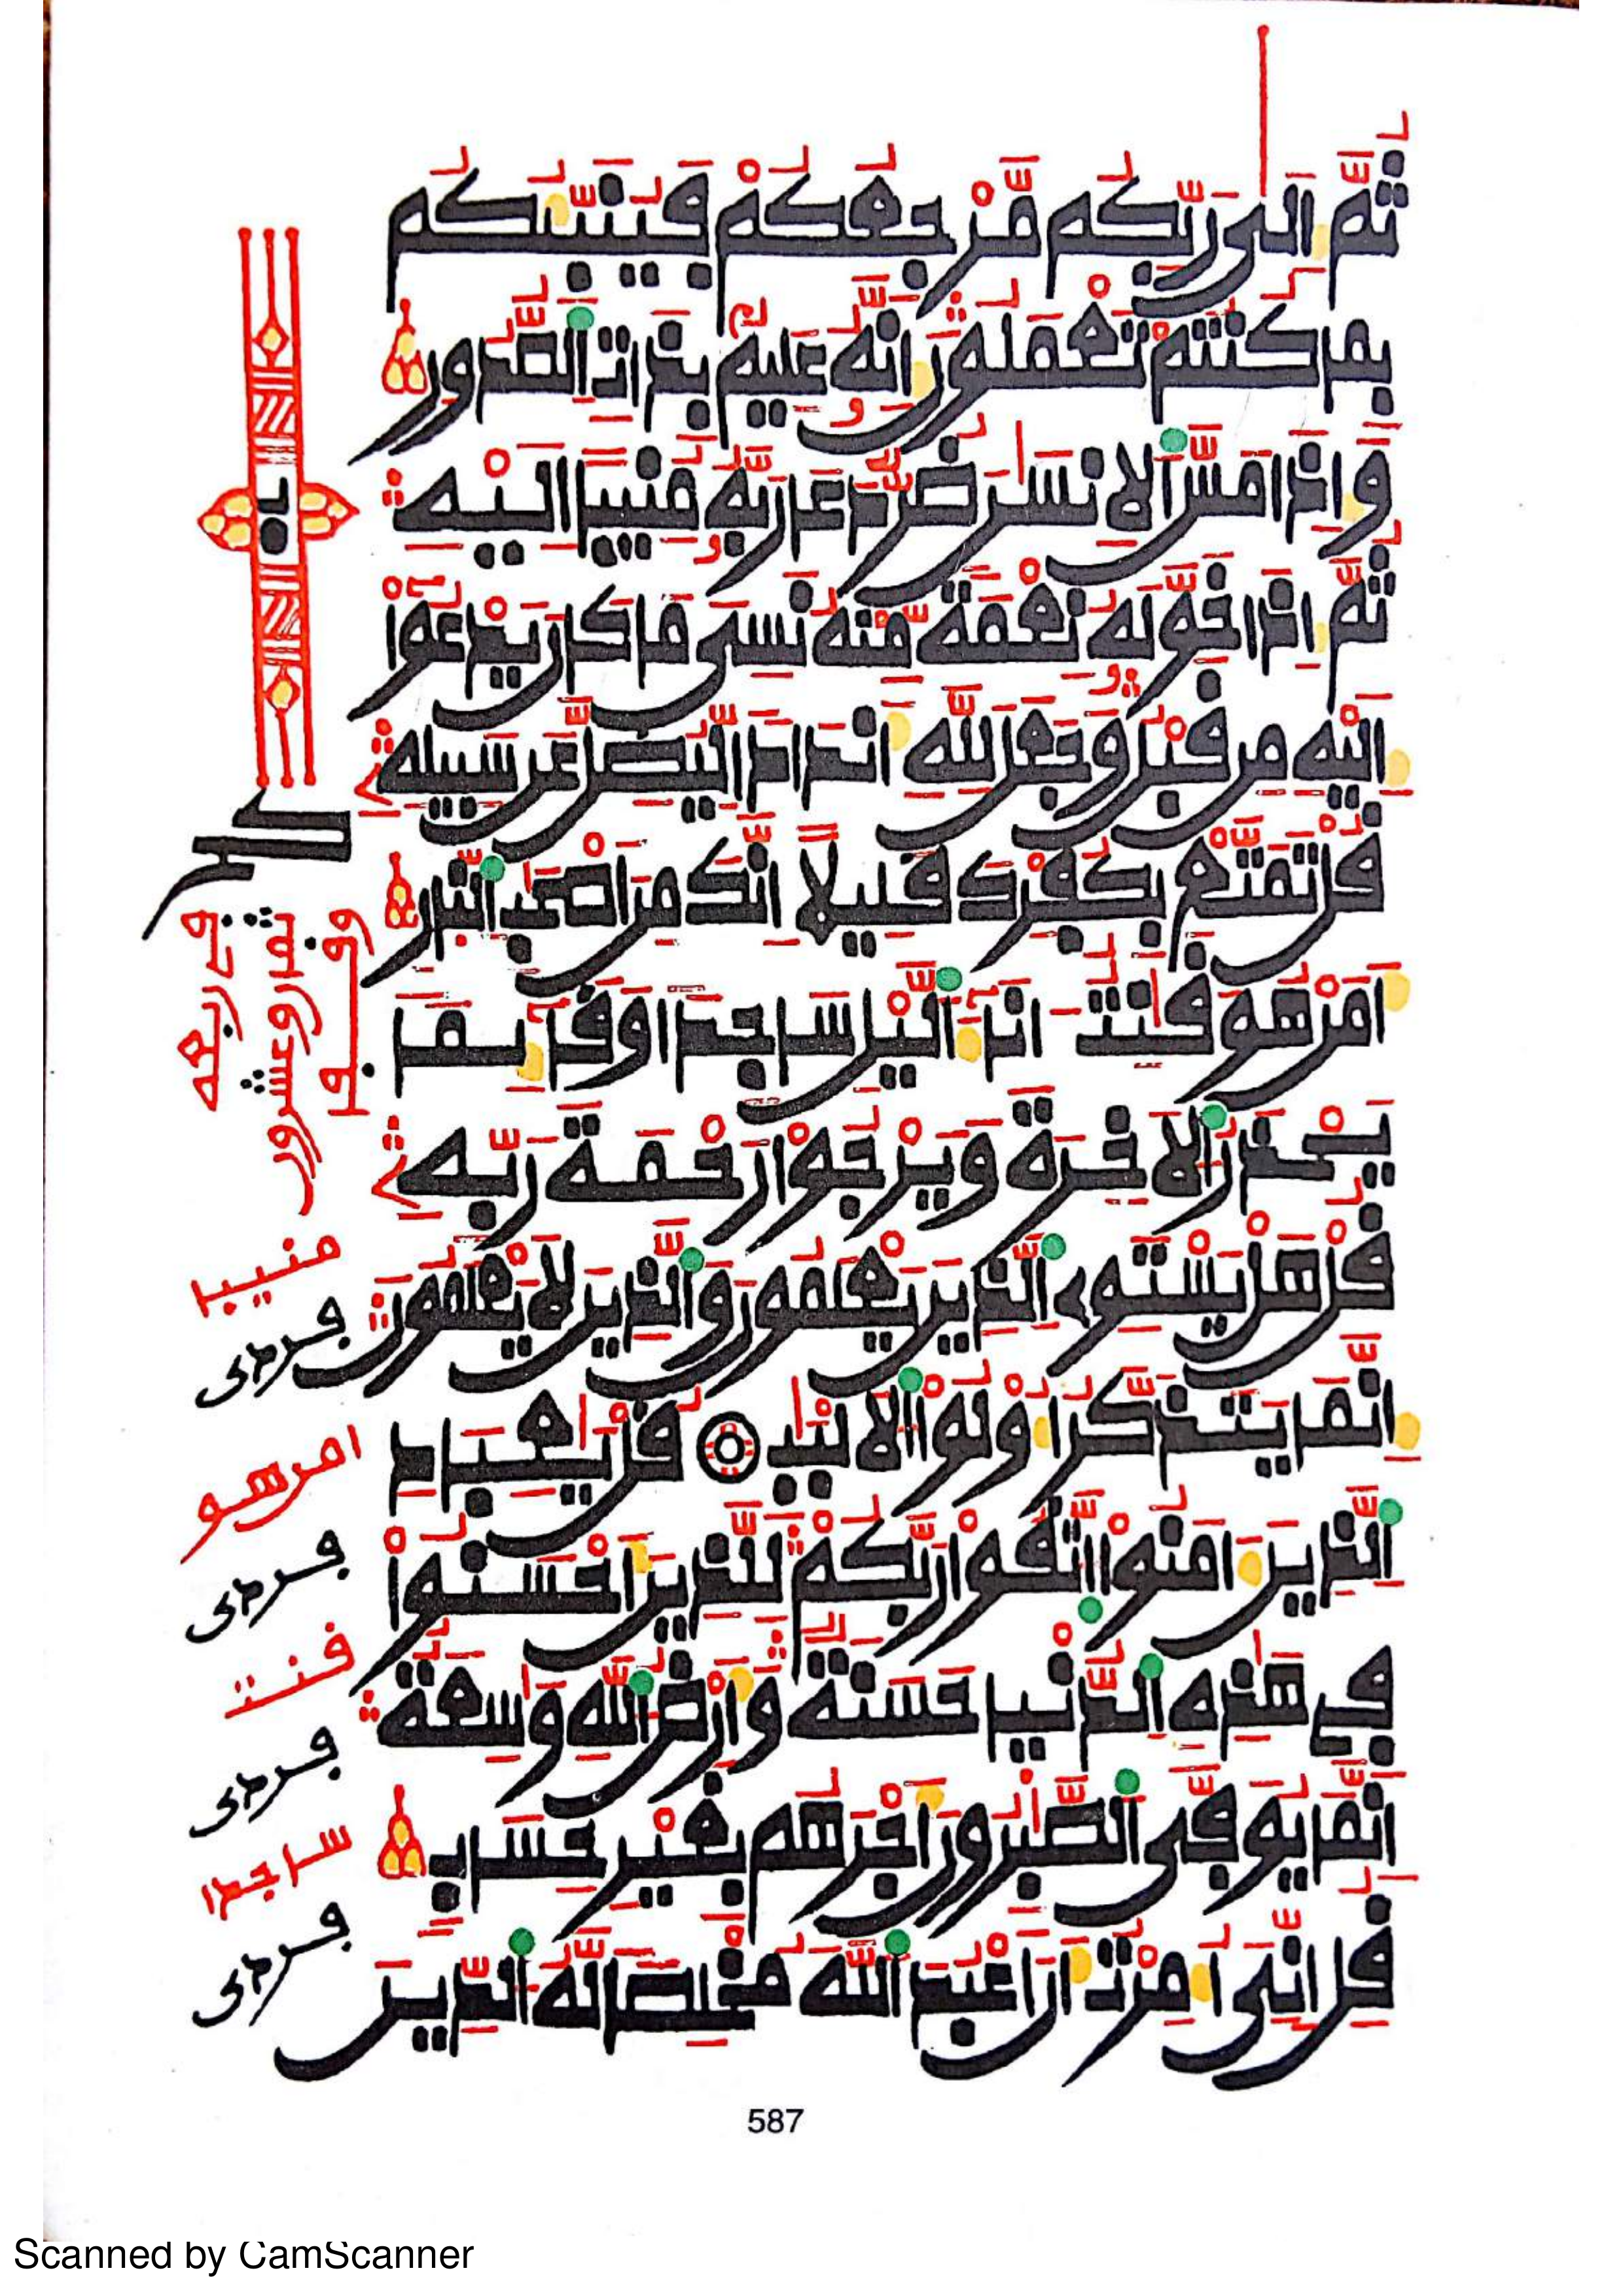 ثُمَّ إِلَىٰ رَبِّكُم مَّرْجِعُكُمْ فَيُنَبِّئُكُم
بِمَا كُنتُمْ تَعْمَلُونَ إِنَّهُ عَلِيمٌ بِذَاتِ الصُّدُورِ
وَإِذَا مَسَّ الْإِنسَٰنَ ضُرٌّ دَعَا رَبَّهُ مُنِيبًا إِلَيْهِ
ثُمَّ إِذَا خَوَّلَهُ نِعْمَةً مِّنْهُ نَسِيَ مَا كَانَ يَدْعُوا
إِلَيْهِ مِن قَبْلُ وَجَعَلَ لِلَّهِ أَندَادًا لِّيُضِلَّ عَن سَبِيلِهِ
قُلْ تَمَتَّعْ بِكُفْرِكَ قَلِيلًا إِنَّكَ مِنْ أَصْحَٰبِ النَّارِ
أَمَنْ هُوَ قَٰنِتٌ ءَانَاءَ الَّيْلِ سَاجِدًا وَقَائِمًا
يَحْذَرُ الْآخِرَةَ وَيَرْجُوا رَحْمَةَ رَبِّهِ
قُلْ هَلْ يَسْتَوِي الَّذِينَ يَعْلَمُونَ وَالَّذِينَ لَا يَعْلَمُونَ
إِنَّمَا يَتَذَكَّرُ أُوْلُوا الْأَلْبَٰبِ قُلْ يَٰعِبَادِ
الَّذِينَ ءَامَنُوا اتَّقُوا رَبَّكُمْ لِلَّذِينَ أَحْسَنُوا
فِي هَٰذِهِ الدُّنْيَا حَسَنَةٌ وَأَرْضُ اللَّهِ وَٰسِعَةٌ
إِنَّمَا يُوَفَّى الصَّٰبِرُونَ أَجْرَهُم بِغَيْرِ حِسَابٍ
قُلْ إِنِّي أُمِرْتُ أَنْ أَعْبُدَ اللَّهَ مُخْلِصًا لَّهُ الدِّينَ
منيبا
امن هو
قنت
ساجدا
587
Scanned by CamScanner